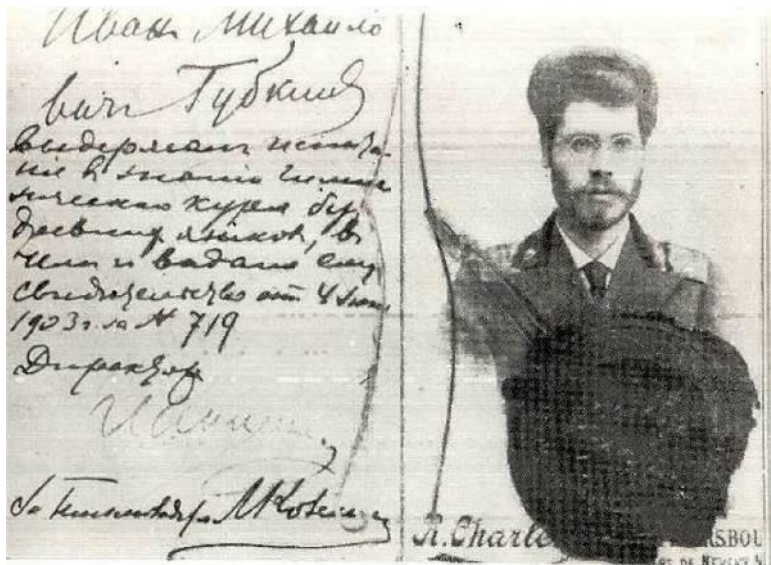 Иванъ Михайло
вичъ Губкинъ
выдержалъ испыта
ніе въ знаніи гимна
зическаго курса безъ
древнихъ языковъ, въ
чемъ и выдано ему
свидѣтельство отъ 4 Іюня
1903 г. за № 719
Директоръ
За
R. Charle
RSBOU